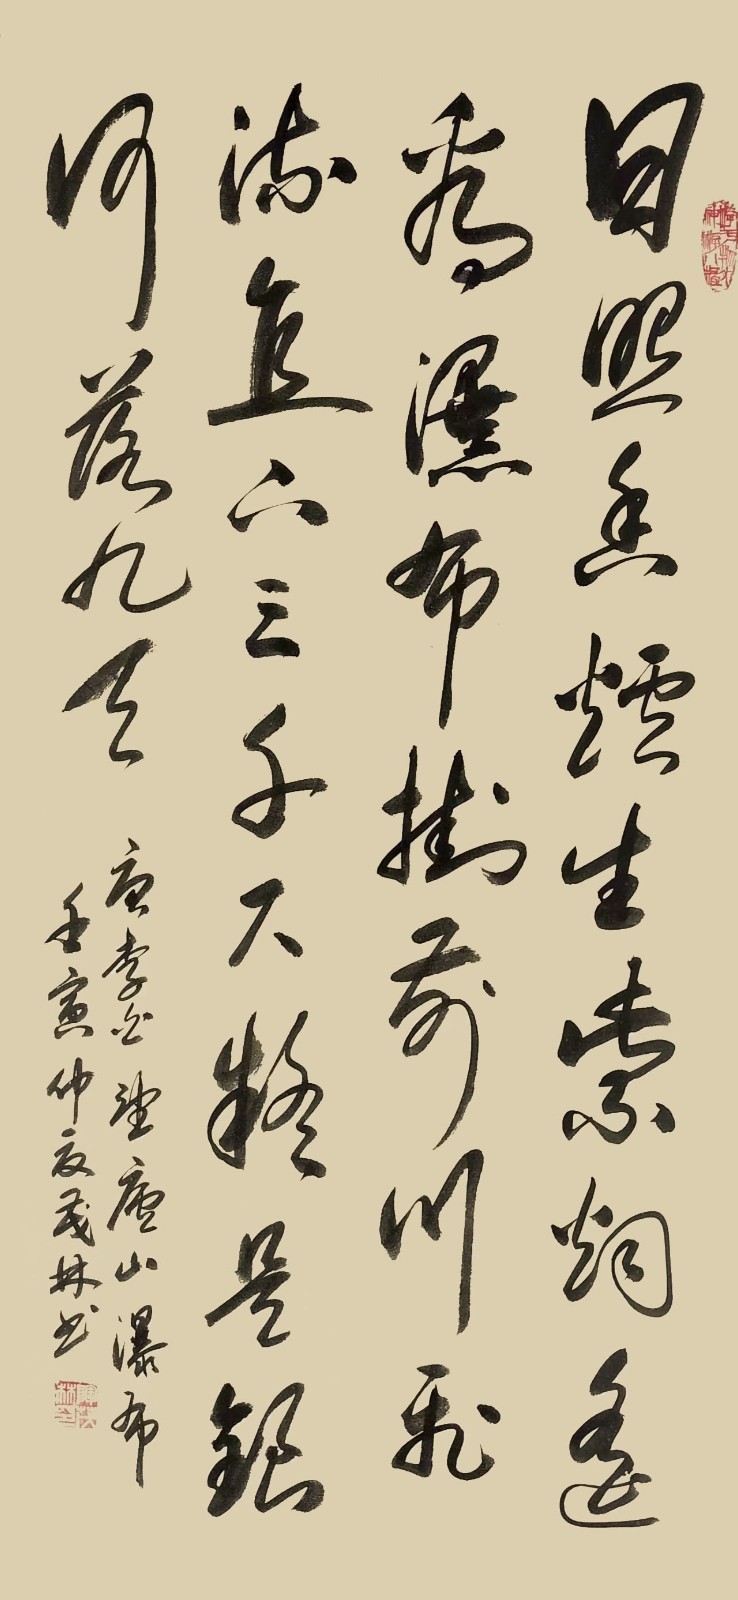 日照香爐生紫烟遥
看瀑布掛前川飛
流直下三千尺疑是銀
河落九天
唐李白望廬山瀑布
壬寅仲夏茂林書